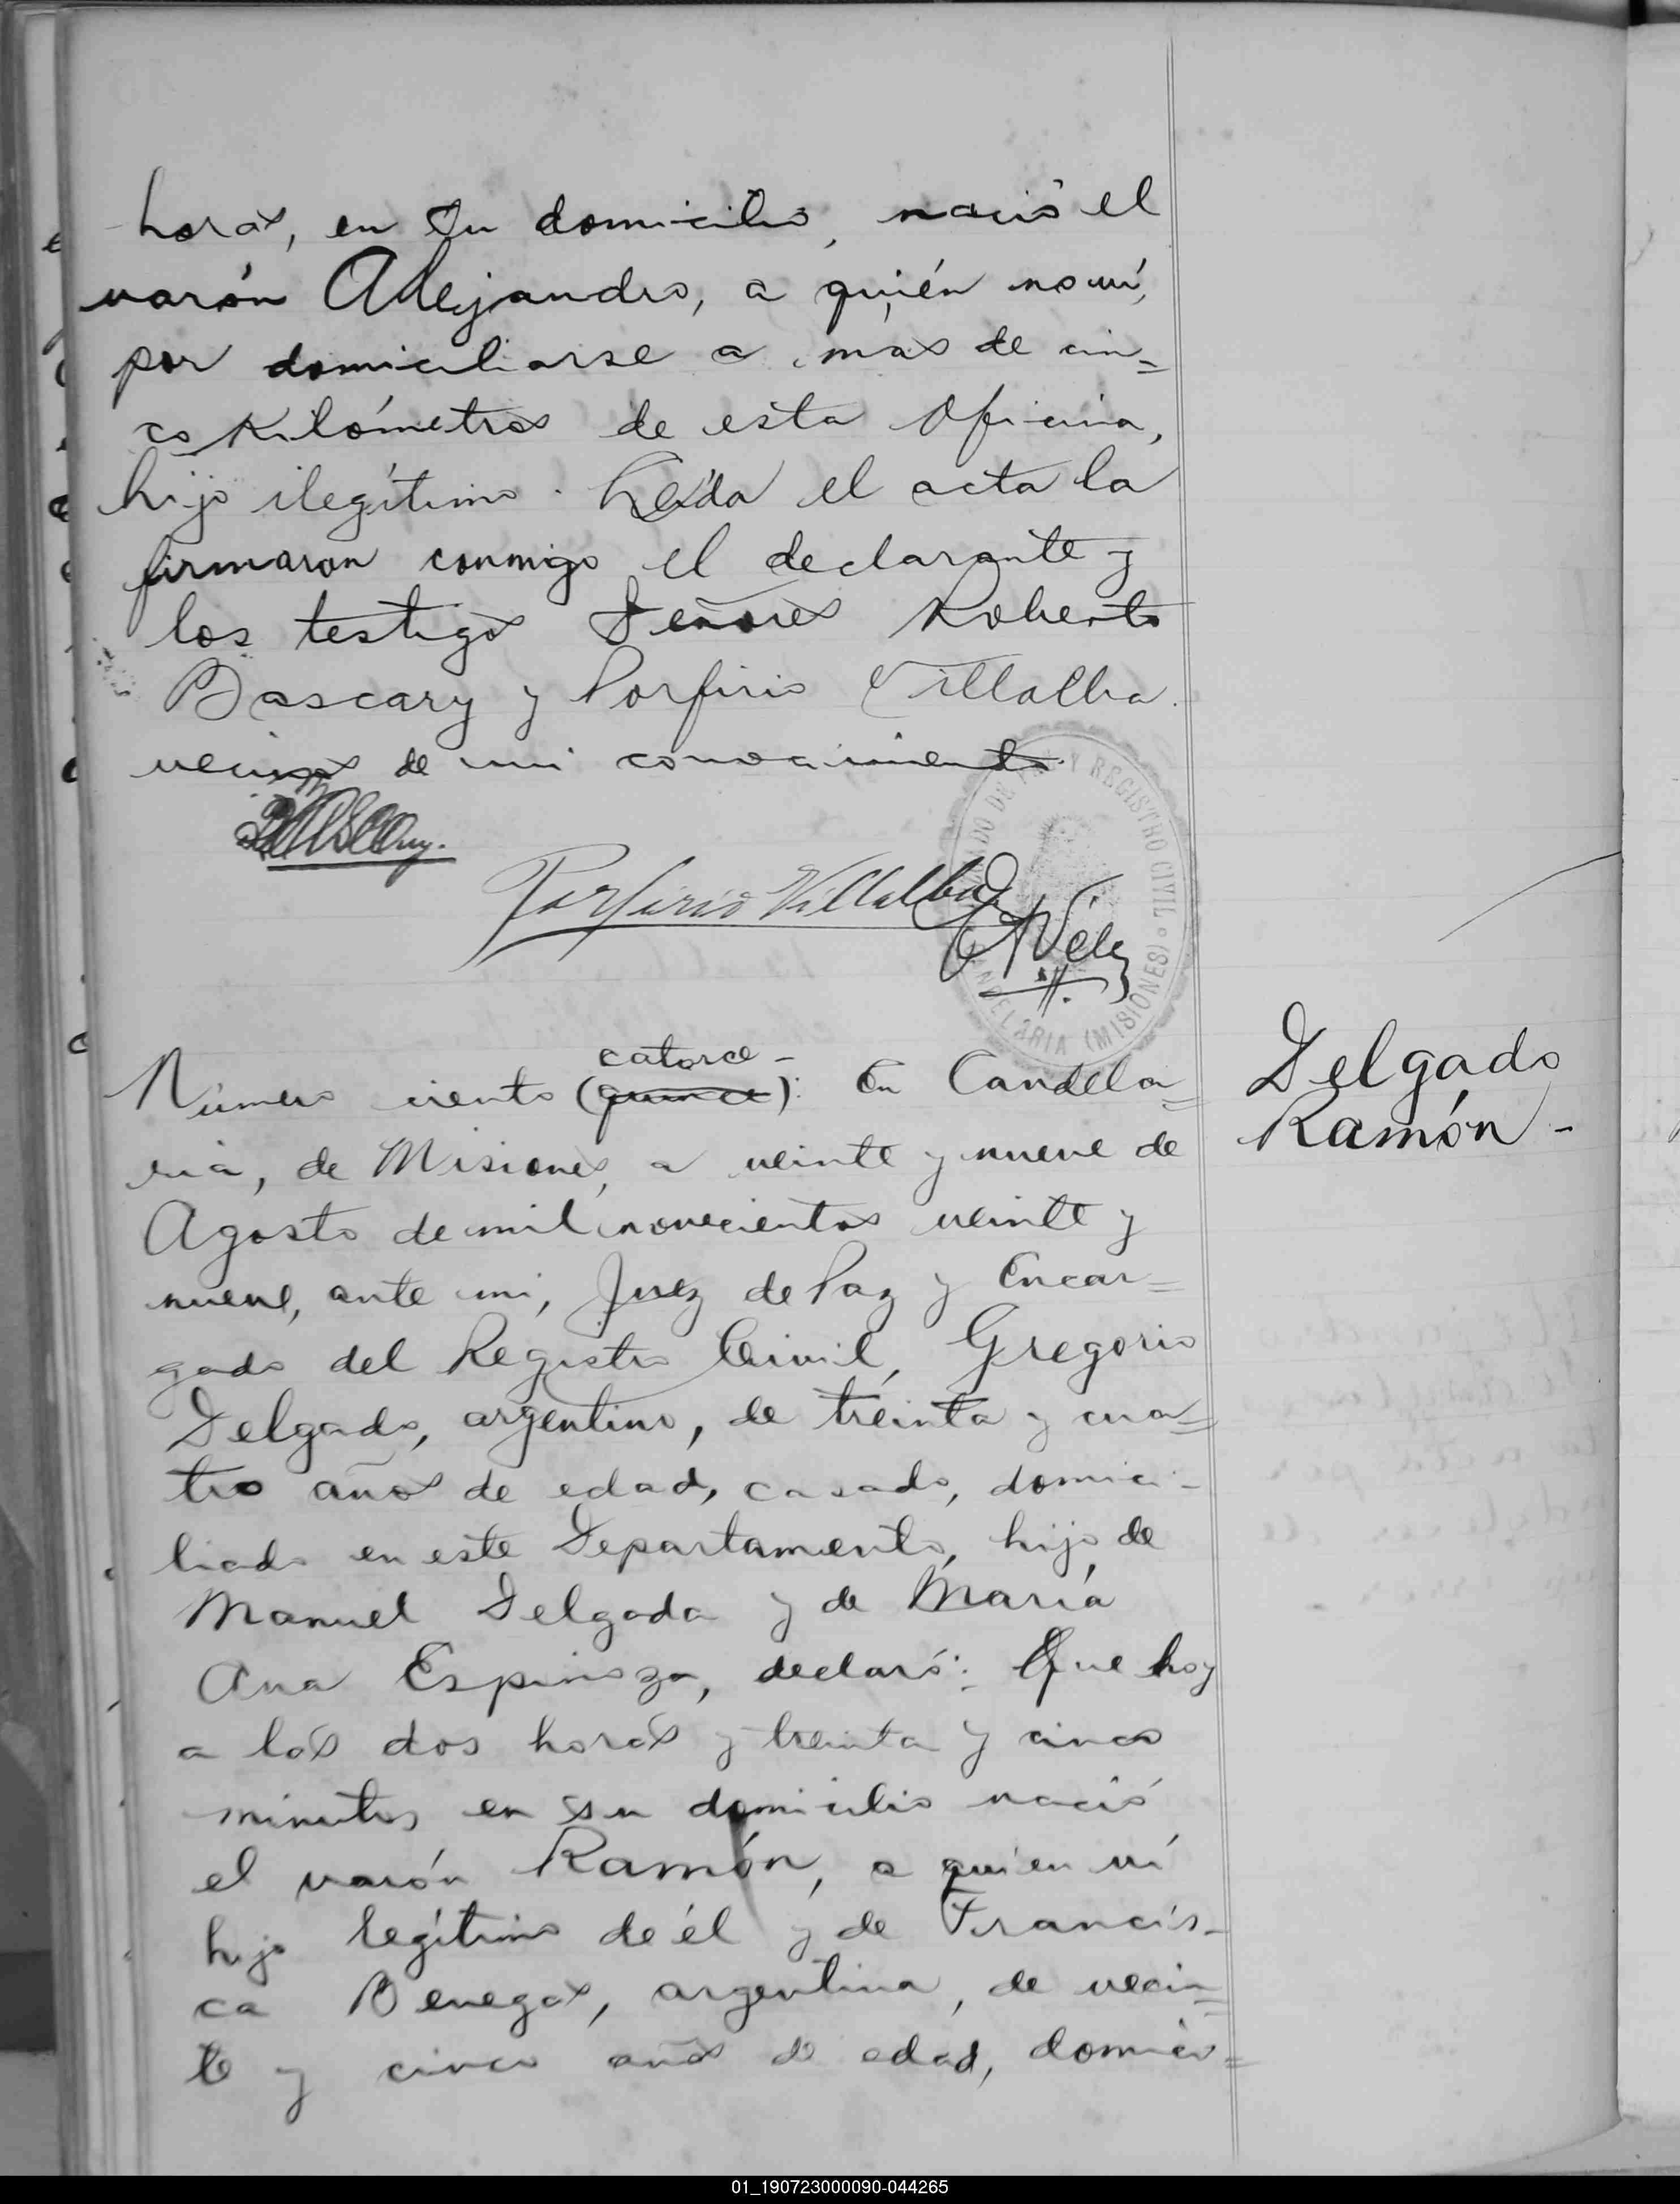 horas, en su domicilio, nació el
varón Alejandro, a quién no ví,
por domiciliarse a más de cin=
co Kilómetros de esta Oficina,
hijo ilegítimo. Leída el acta la
firmaron conmigo el declarante y
los testigos Señores Roberto
Bascary y Porfirio Villalba
vecinos de mi conocimiento.
RBascary.
Porfirio Villalba
Vélez
Y REGISTRO CIVIL
CANDELARIA (MISIONES)
catorce -
Número ciento (quince): En Candela=
ria, de Misiones, a veinte y nueve de
Agosto de mil novecientos veinte y
nueve, ante mi, Juez de Paz y Encar=
gado del Registro Civil, Gregorio
Delgado, argentino, de treinta y cua=
tro años de edad, casado, domici-
liado en este Departamento, hijo de
Manuel Delgado y de María
Ana Espinoza, declaró: Que hoy
a las dos horas y treinta y cinco
minutos en su domicilio nació
el varón Ramón, a quien ví
hijo legítimo de él y de Francis-
ca Benegas, argentina, de vein=
te y cinco años de edad, domici=
Delgado
Ramón -
01_190723000090-044265